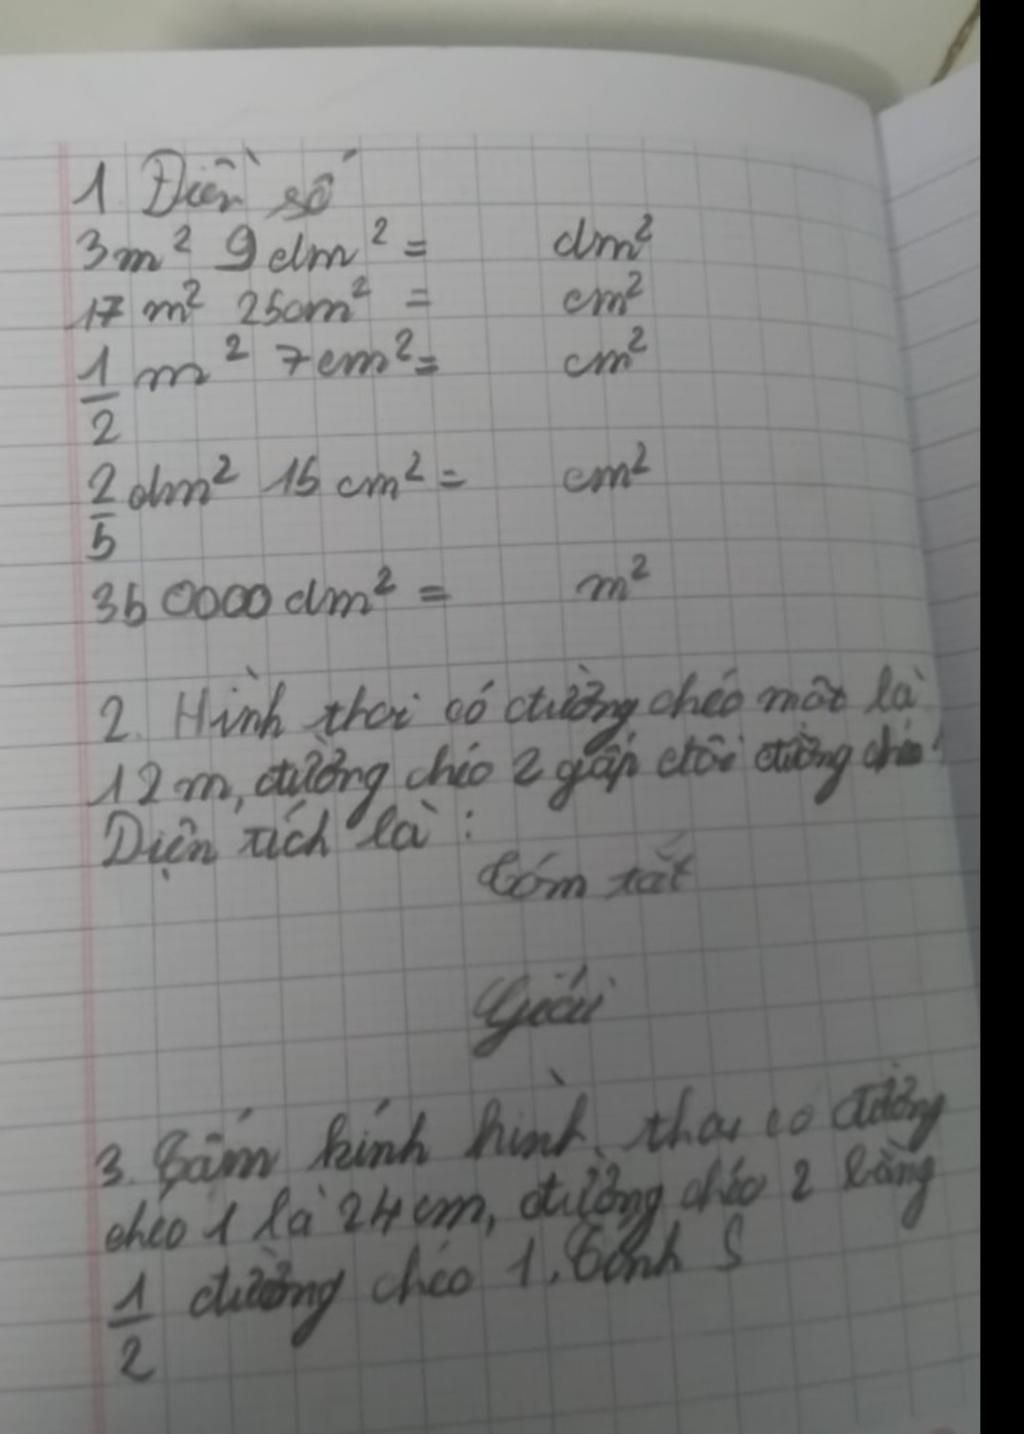 1 Điền số
3m² 9dm² = dm²
17 m² 25cm² = cm²
1/2 m² 7cm² = cm²
2/5 dm² 15 cm² = cm²
350000 dm² = m²
2. Hình thoi có đường chéo một là
12m, đường chéo 2 gấp đôi đường chéo 1
Diện tích là :
Tóm tắt
Giải
3. Tấm kính hình thoi có đường
chéo 1 là 24 cm, đường chéo 2 bằng
1/2 đường chéo 1. Tính S